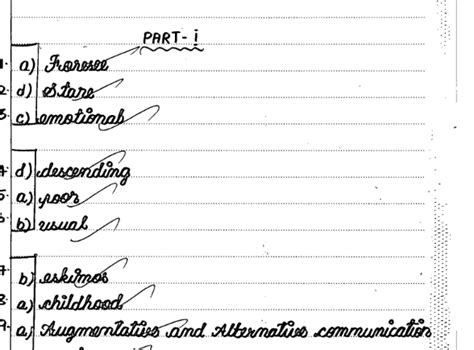 PART - i
1. a) Foresee
2. d) Stare
3. c) emotional
4. d) descending
5. a) poor
6. b) usual
7. b) eskimos
8. a) childhood
9. a) Augmentative and Alternative communication